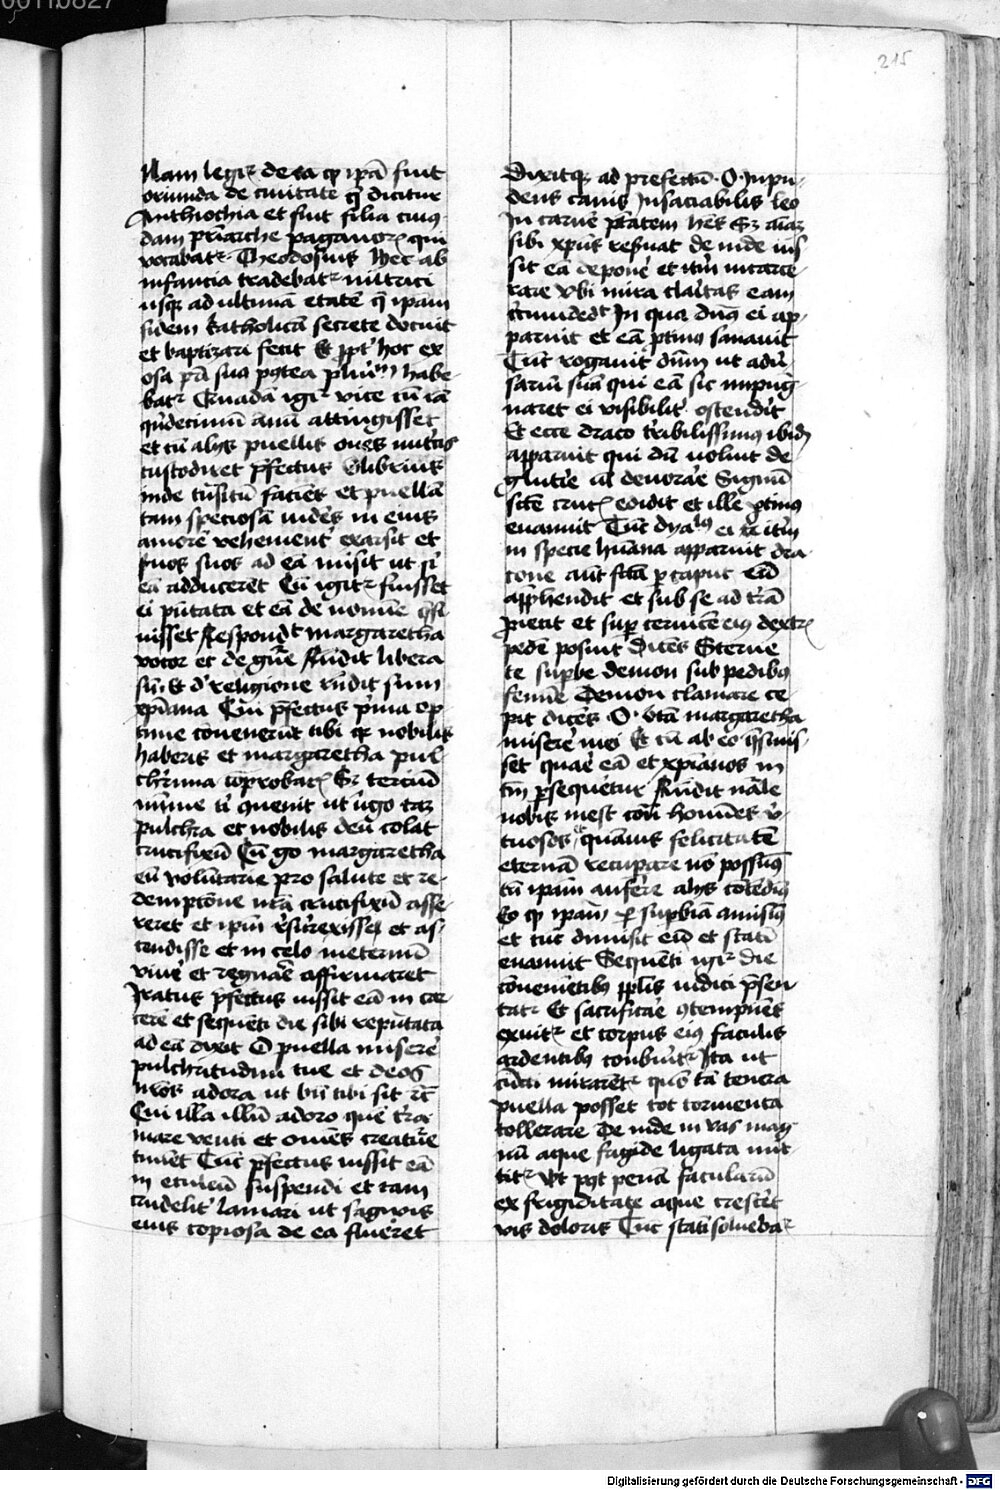 215
Nam legit̉ de ea ꝙ ip̄a fuit
oriunda de ciuitate q̄ dicitur
Anthiochia et fuit filia cuiuꝰ-
dam pr̄iarche paganoꝝ qui
vocabat̉ Theodosius Hec ab
infantia tradebat̉ nutrici
usqꝫ ad ultimā etatē q̄ ip̄am
fidem katholicā secrete docuit
et baptizari fecit Et ꝓpt̉ hoc ex
osa pr̄i suo postea plurimū habe-
bat̉ Quadā igit̉ vice cū iā
quīdecimū annū attingisset
et cū alijs puellis oues nutricis
custodiret p̄fectus Olibrius
inde trāsitū faciēs et puellā
tam speciosā uidēs in eius
amorē vehement̉ exarsit et
suos ad eā misit ut si
eā adduceret Cū igit̉ fuisset
ei p̄ntata et eā de nomine q̄si-
uisset Respondit margaretha
vocor et de gn̄e Rn̄dit libera
sū Et de religione rn̄dit sum
xp̄iana Cui p̄fectus prima op-
time conueniūt tibi ꝙ nobilis
haberis et margaretha pul-
cherrima cōprobaris Sꝫ terciū
minime tibi ꝯuenit ut uirgo tam
pulchra et nobilis deū colat
crucifixū Cū ergo margaretha
eū volūtarie pro salute et re-
demptōne nr̄a crucifixū asse-
reret et ipm̄ resurrexisse et as-
cendisse et in celo in eternū
viuere et regnare affirmaret
Iratus p̄fectus iussit eā in car-
cerē et sequēti die sibi rep̄ntata
ad eā dixit O puella miserere
pulchritudini tue et deos
nr̄os adora ut bn̄ tibi sit ⁊c̄
Cui illa illū adoro quē terra
mare venti et omnes creature
timēt Tūc p̄fectus iussit eā
in eculeū suspendi et tam
crudelit̉ laniari ut sagwis
eius copiosa de ea flueret
Dixitqꝫ ad prefectū O Inpu-
dens canis Insaciabilis leo
In carnē ptātem hēs Sꝫ aīam
sibi xp̄us reseruat de inde ius-
sit eā deponē et itm̄ incarce-
rare vbi mira claritas eam
circumdedit In qua dn̄s ei ap-
paruit et eā ꝓtinꝰ sanauit
Tūc rogauit dn̄m ut aduer-
sariū suā qui eā sic inpug-
naret ei visibilit̉ ostendit
Et ecce draco terribilissimꝰ ibidē
apparuit qui dū voluit de-
glutire uel deuorare Signū
scē crucis edidit et ille ꝓtinꝰ
euanuit Tūc dyabolus ei itm̄
in specie humana apparuit dra-
cone aut̄ p caput eū
app̄hendit et sub se ad terrā
ꝓiecit et super ceruicē eiꝰ dextrū
pedē posuit dicēs Sterne
te superbe demon sub pedibꝰ
femine Demon clamare ce-
pit dicēs O beata margaretha
miserere mei Et cū ab eo q̄siuis-
set quare eā et xp̄ianos in
tm̄ persequeretur Rn̄dit naturale
nobis inest contra homines vir-
tuosos et quāuis felicitatē
eternā recuperare nō possumꝰ
tn̄ ipam auferre alijs
Eo ꝙ ipam per superbiā amisimꝰ
et tūc dimisit eū et stati
euanuit Sequēti igit̉ die
conuenientibꝰ populis iudici p̄sen-
tat̉ Et sacrificare ꝯtempnēs
exuit̉ et corpus eiꝰ faculis
ardentibꝰ comburit̉ Ita ut
cuncti mirarent̉ quō tā tenera
puella posset tot tormenta
tollerare De inde in vas mag-
nū aque frigide ligata mit-
tit̉ Vt post penā facularū
ex frigiditate aque cresceret
vis doloris Tūc stati soluebat̉
Digitalisierung gefördert durch die Deutsche Forschungsgemeinschaft - DFG